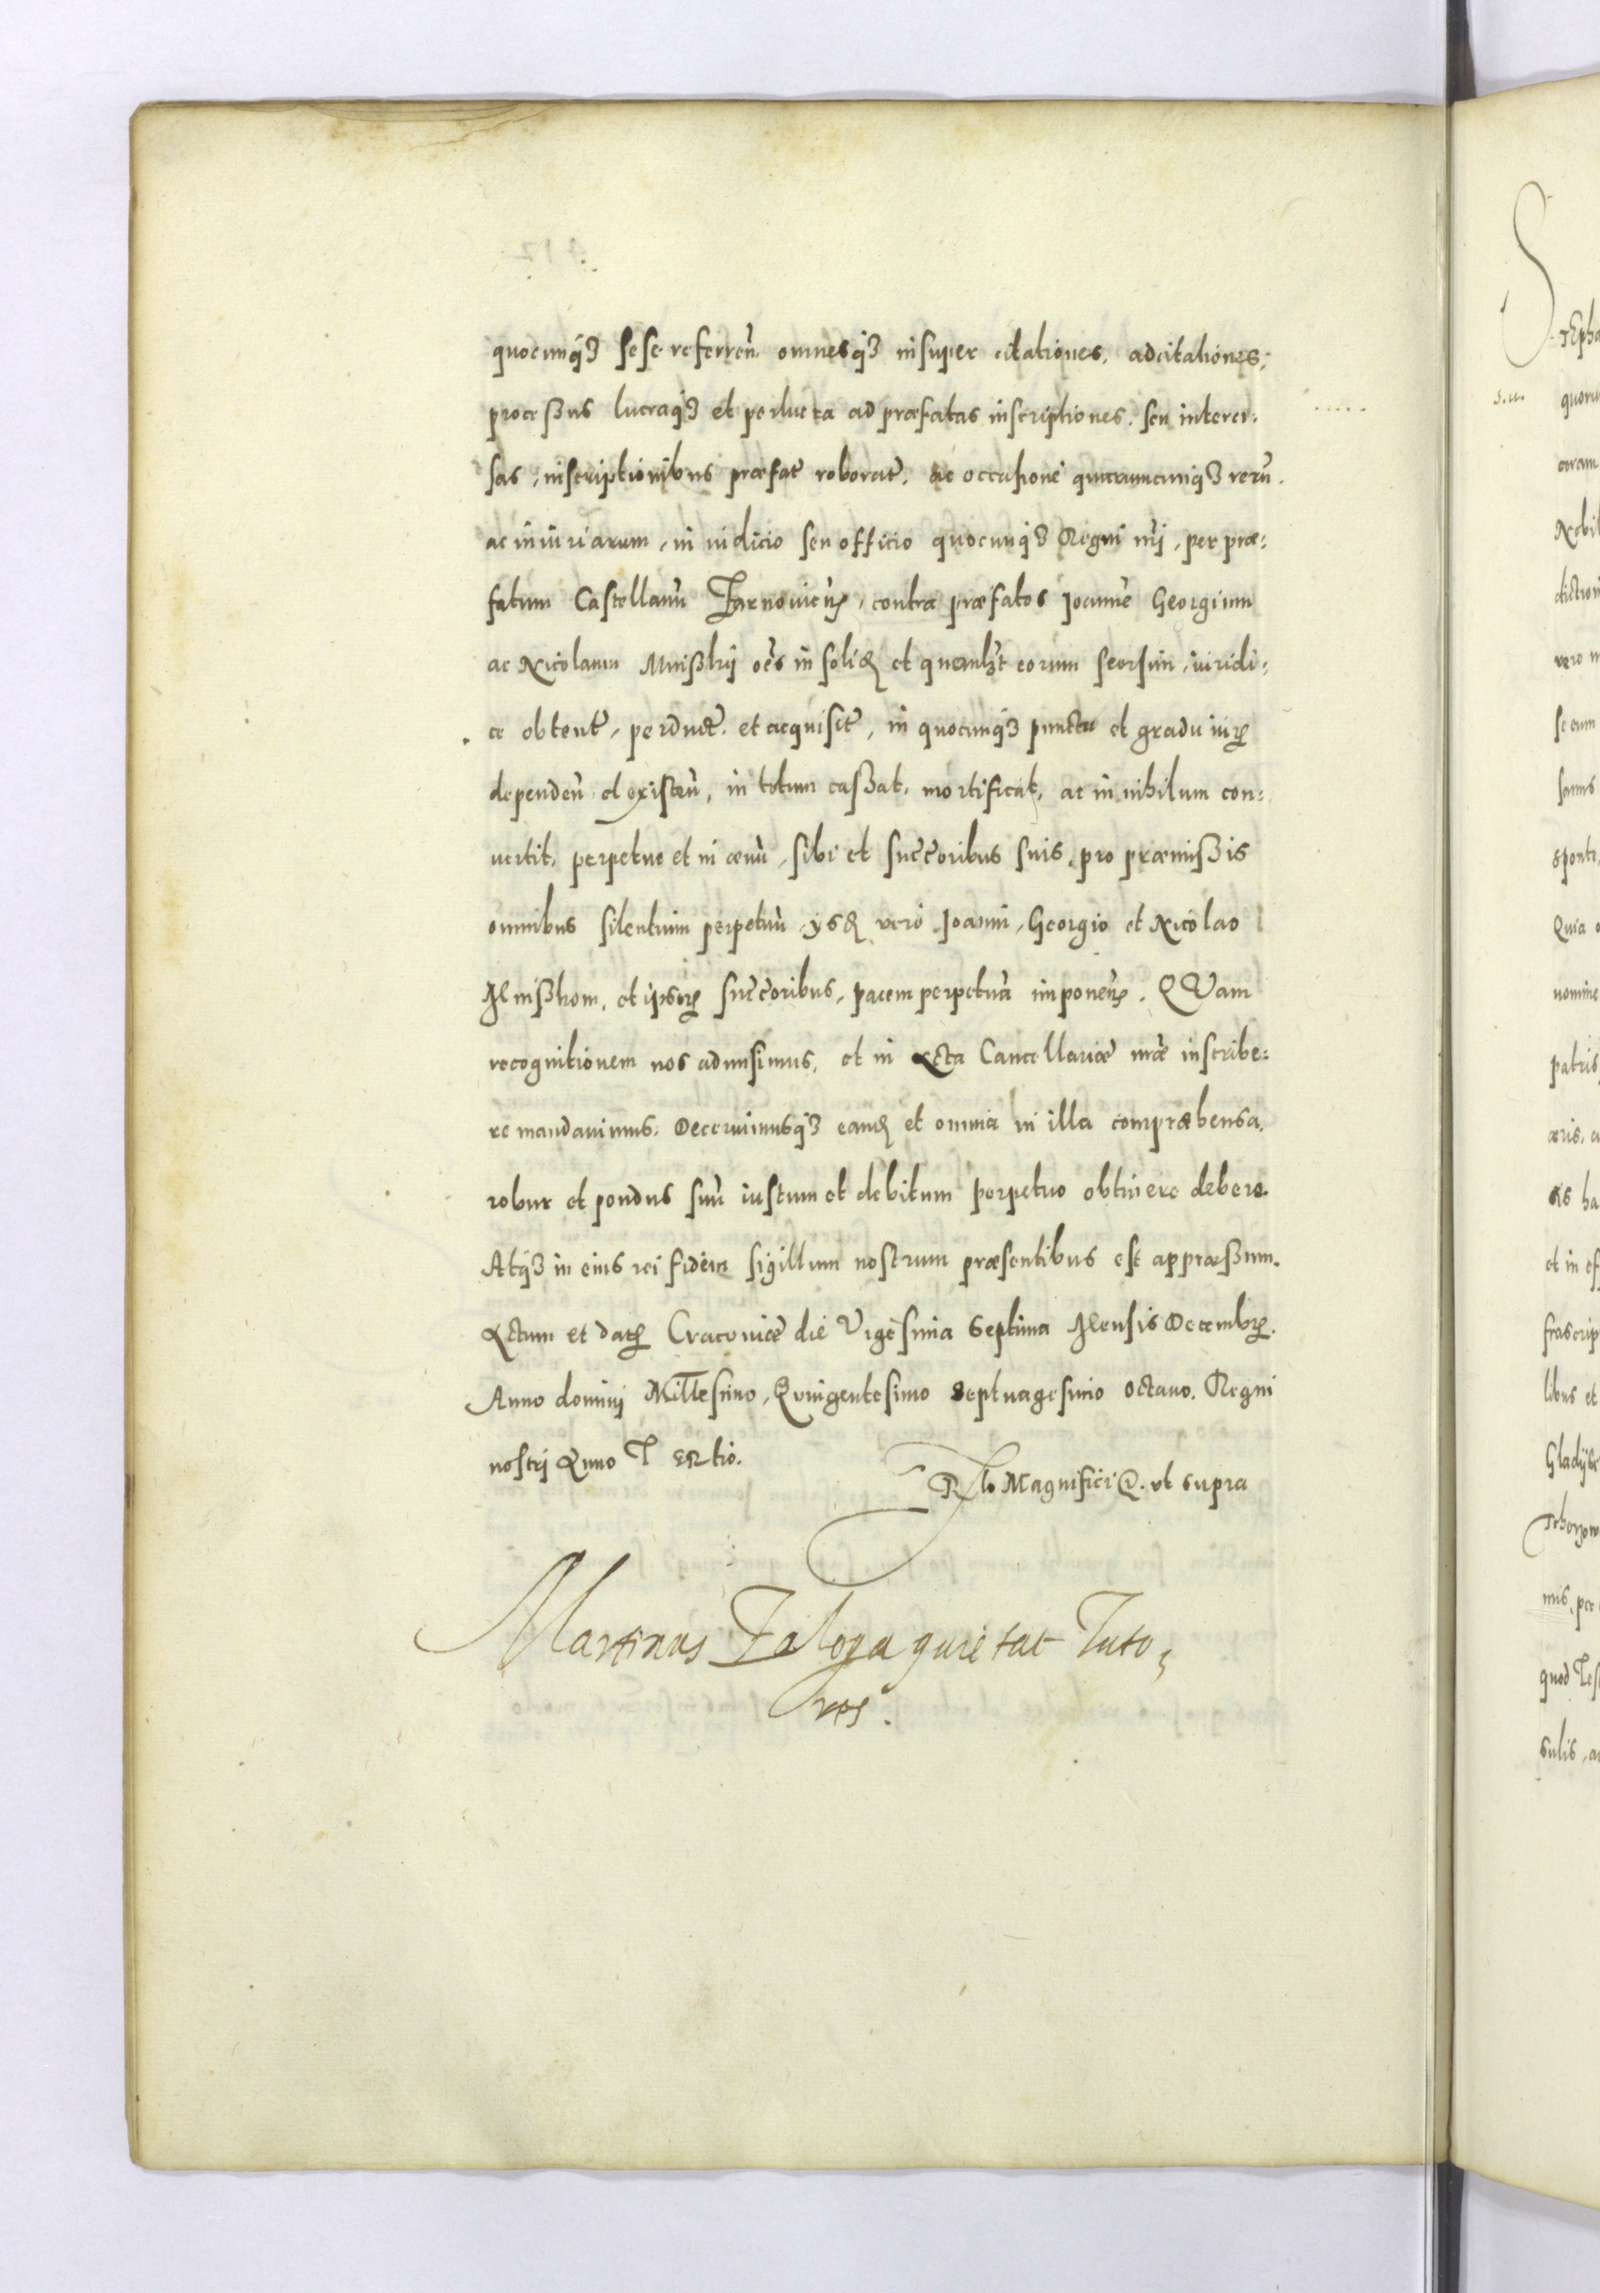 quocunq₃ sese referren̄. omnesq₃ insuper citationes, adcitationes,
processus lucraq₃ et perlucra ad præfatas inscriptiones, seu interci:
sas, inscriptionibus præfat̄ roborat̄, ac occasione quarumcunq₃ rerū.
ac iniuriarum, in iudicio seu officio quocunq₃ Regni nr̄i, per præ:
fatum Castellanū Zarnoviceñ, contra præfatos Joannē Georgium
ac Nicolaum Mnißkij oēs in solid̄ et quemlibet eorum seorsim, iuridi:
ce obtent̄, perduct̄. et acquisit̄, in quocunq₃ puncto et gradu iuris
dependeñ et existeñ, in totum caßat, mortificat, ac in nihilum con:
uertit, perpetuo et in æuū, sibi et succ̄oribus suis, pro præmißis
omnibus silentium perpetuū, ysd̄ vero Joanni, Georgio et Nicolao
Mnißkom, et ipsor̄ succ̄oribus, pacem perpetuā imponeñ. QVam
recognitionem nos admisimus, et in Acta Cancellariæ nr̄æ inscribe:
re mandauimus. Decernimusq₃ eand̄ et omnia in illa compræhensa,
robur et pondus suū iustum et debitum perpetuo obtinere debere.
Atq₃ in eius rei fidem sigillum nostrum præsentibus est appræßum.
Actum et dat̄ Cracouiæ die Vigesima Septima Mensis Decembr̄.
Anno dominj Millesimo, Quingentesimo Septuagesimo octauo. Regni
nostrj Anno TERtio.
Rlo Magnifici D. ut supra
Martinus Zaloga quietat Tuto:
res.